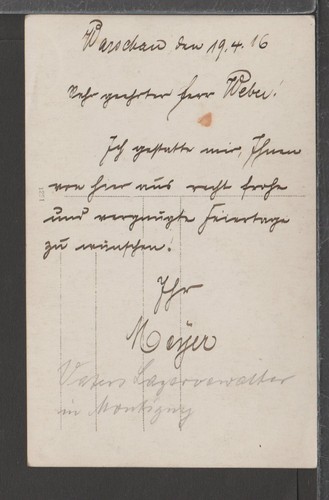 Warschau den 19.4.16
Sehr geehrter Herr Weber!
Ich gestatte mir, Ihnen
von hier aus recht frohe
und vergnügte Feiertage
zu wünschen.
Ihr
Meyer
Vaters Lagerverwalter
in Montigny